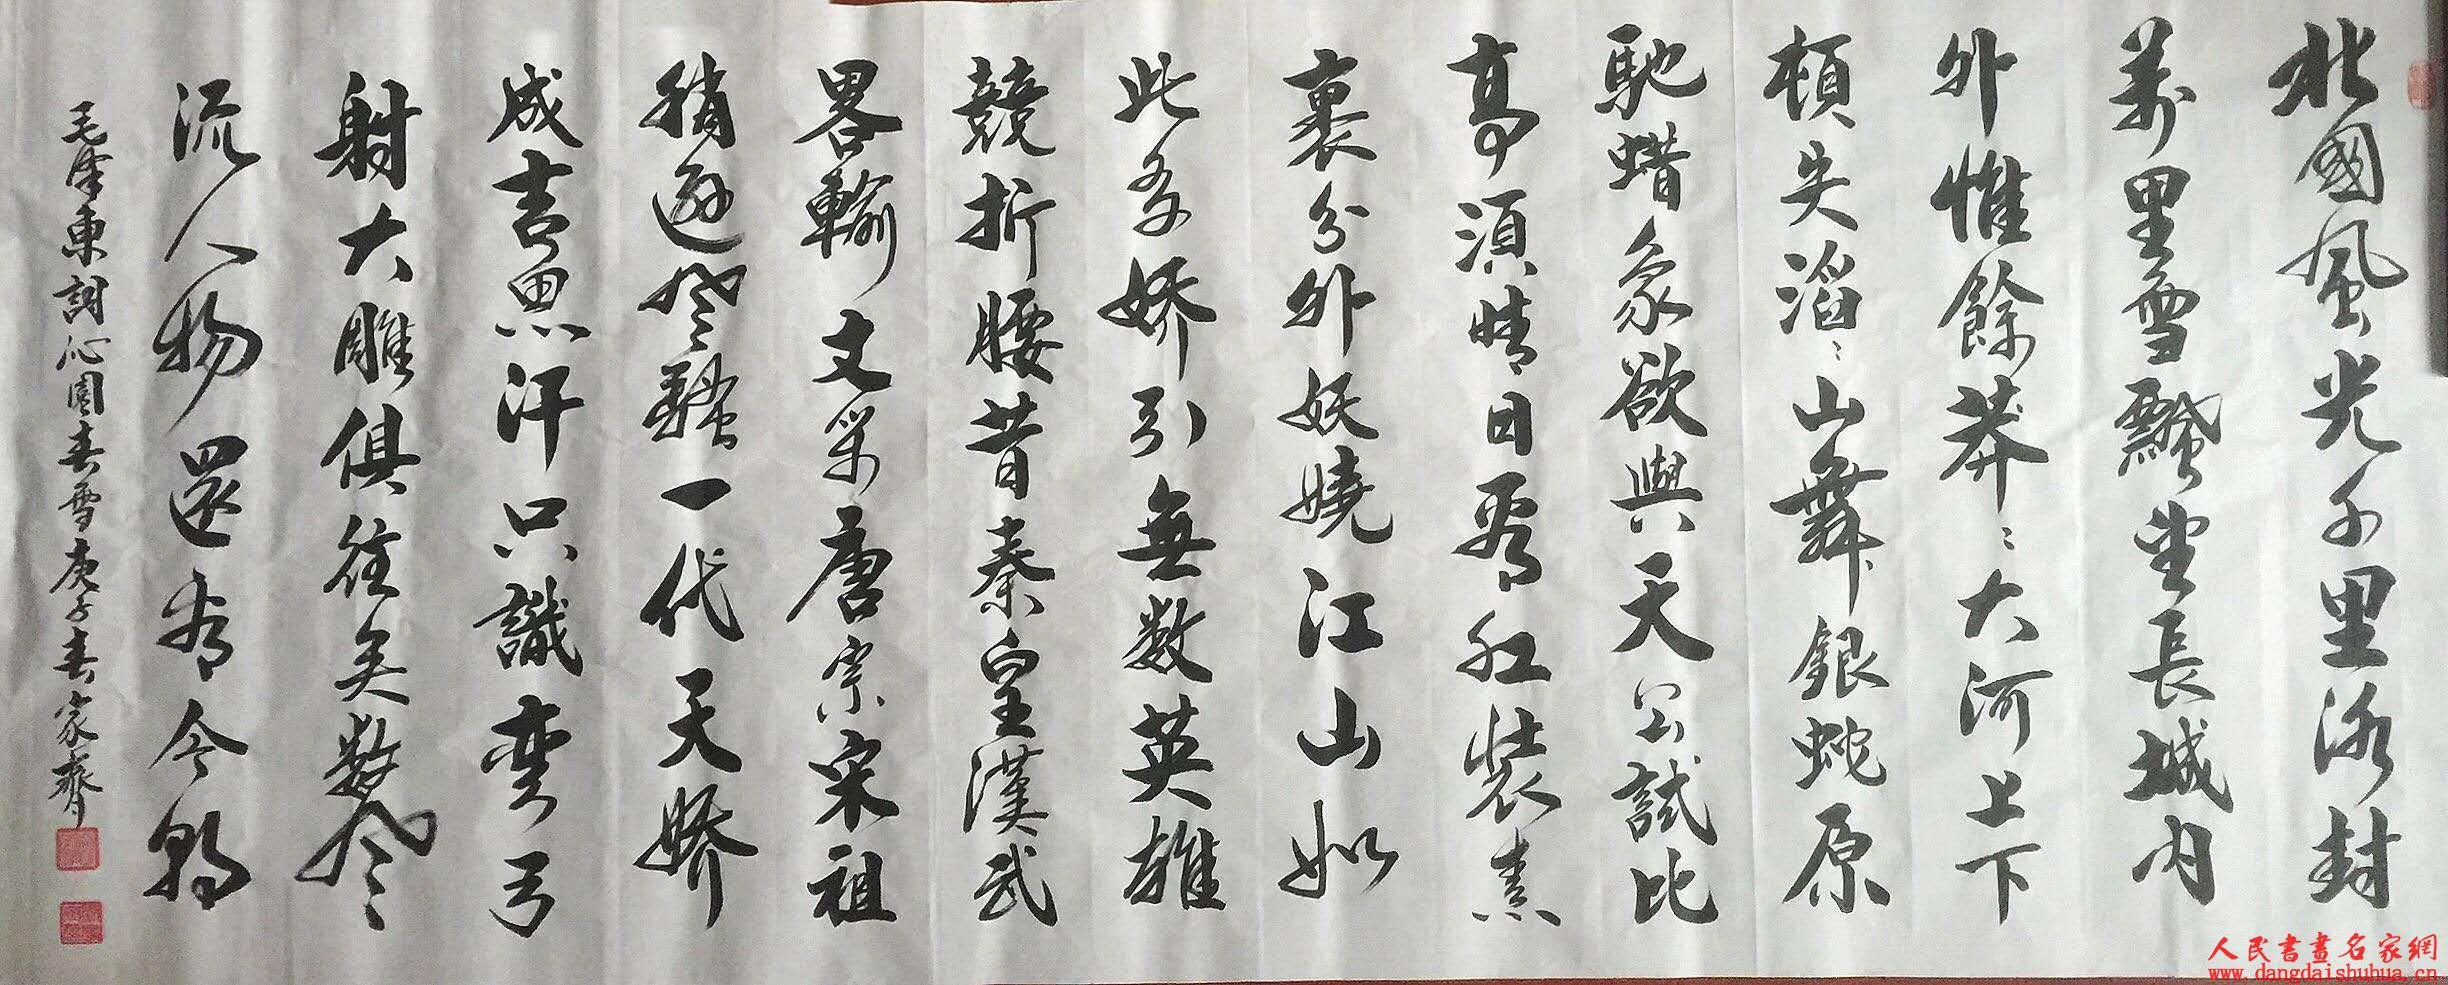 北國風光千里冰封
萬里雪飄望長城内
外惟餘莽〻大河上下
頓失滔〻山舞銀蛇原
馳蜡象欲與天公試比
高須晴日看紅裝素
裹分外妖嬈江山如
此多嬌引無数英雄
競折腰昔秦皇漢武
畧輸文采唐宗宋祖
稍遜風騷一代天嬌
成吉思汗只識彎弓
射大雕俱往矣数風
流人物還看今朝
毛澤東詞沁園春雪庚子春家齊
人民書畫名家網
www.dangdaishuhua.cn